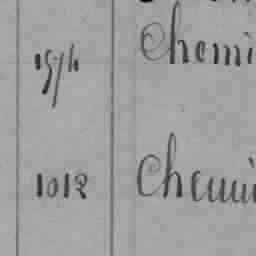 Chemi
1012 Chemi